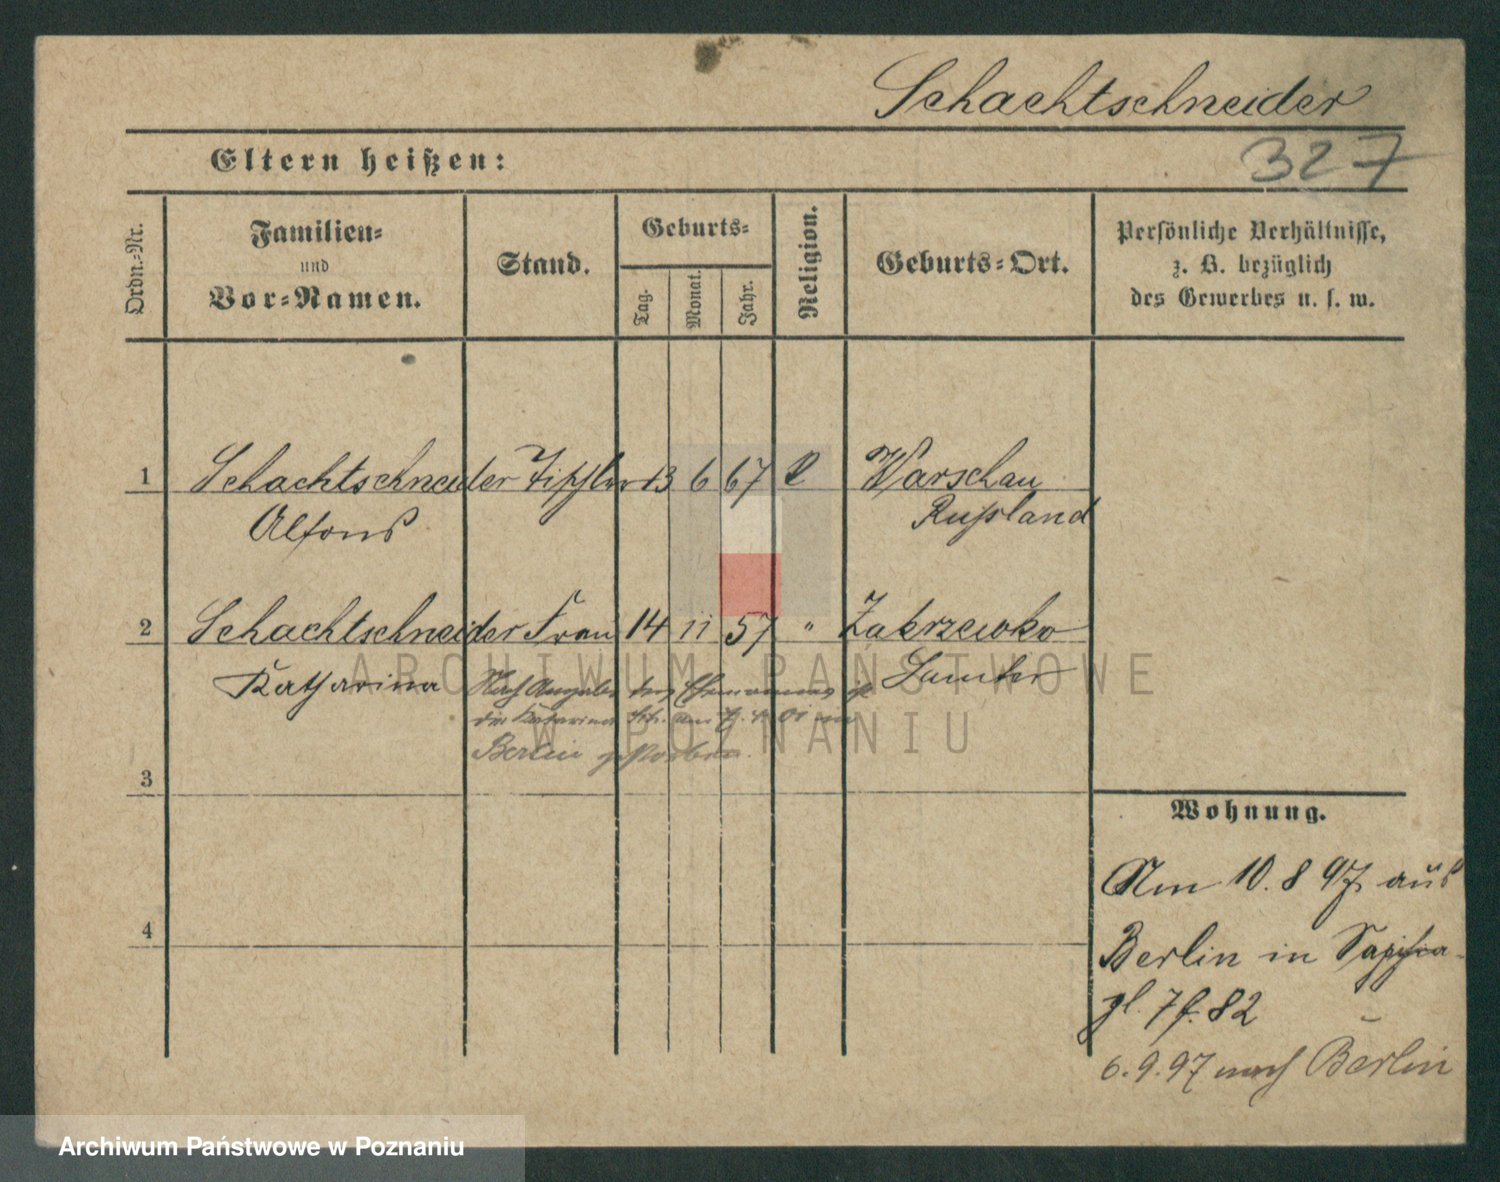 Schachtschneider
Eltern heißen:
327
Ordn.-Nr.
Familien-
und
Vor-Namen.
Stand.
Geburts-
Tag.
Monat.
Jahr.
Religion.
Geburts-Ort.
Persönliche Verhältnisse,
z. B. bezüglich
des Gewerbes u. s. w.
1 Schachtschneider Tischler 13 6 67 Warschau
Alfons Russland
2 Schachtschneider Frau 14 11 57 " Zakrzewko
Katharina Samter
Nach Angabe des Ehemannes
die Katarina am in
Berlin gestorben.
3
4
Wohnung.
Am 10.8 97 aus
Berlin in
82
6.9.97 nach Berlin
ARCHIWUM PAŃSTWOWE
W POZNANIU
Archiwum Państwowe w Poznaniu